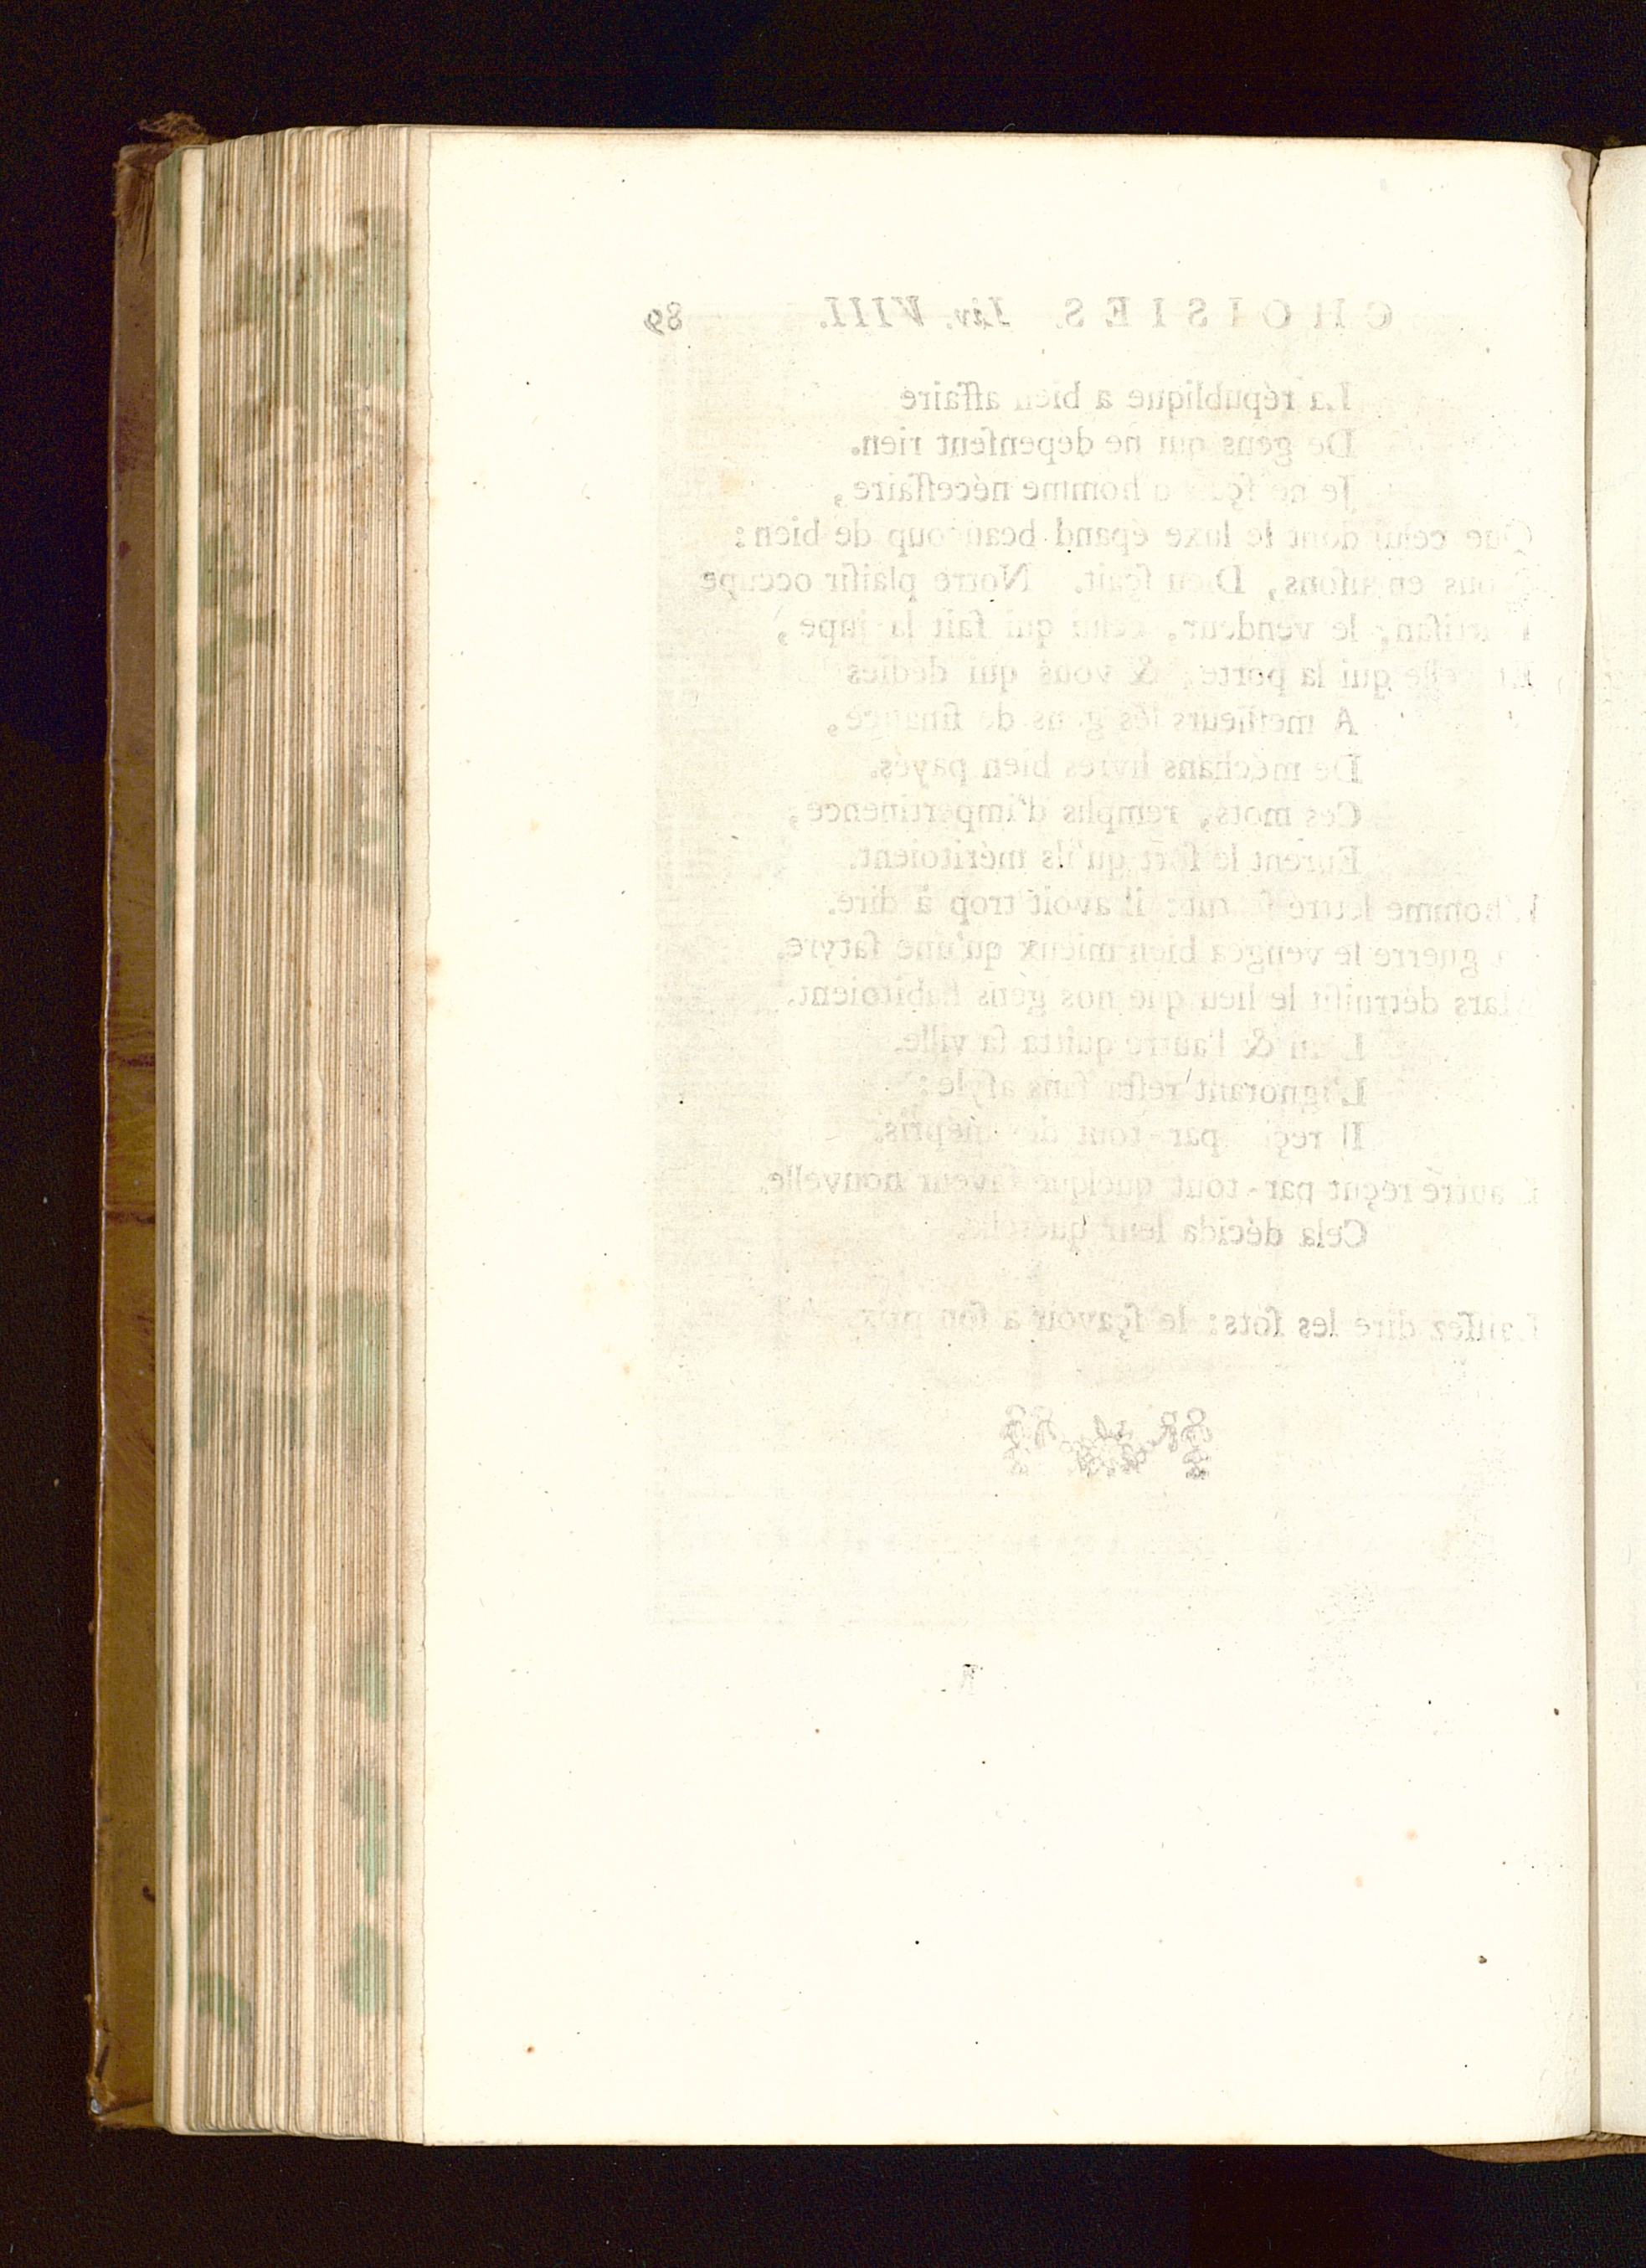 CHOISIES. Liv. VIII. 89
La république a bien affaire
De gens qui ne dépenſent rien.
Je ne ſçais d'homme néceſſaire,
Que celui dont le luxe épand beaucoup de bien:
en uſons, Dieu ſçait. Notre plaiſir occupe
L'artiſan, le vendeur, celui qui fait la jupe,
Et celle qui la porte, & vous qui dédiez
A meſſieurs les gens de finance,
De méchans livres bien payés.
Ces mots, remplis d'impertinence,
Eurent le ſort qu'ils méritoient.
L'homme lettré ſe tut: il avoit trop à dire.
La guerre le vengea bien mieux qu'une ſatyre.
Mars détruiſit le lieu que nos gens habitoient.
L'un & l'autre quitta ſa ville.
L'ignorant reſta ſans aſyle:
Il reçut par-tout des mépris.
L'autre reçut par-tout quelque faveur nouvelle.
Cela décida leur querelle.
Laiſſez dire les ſots: le ſçavoir a ſon prix.